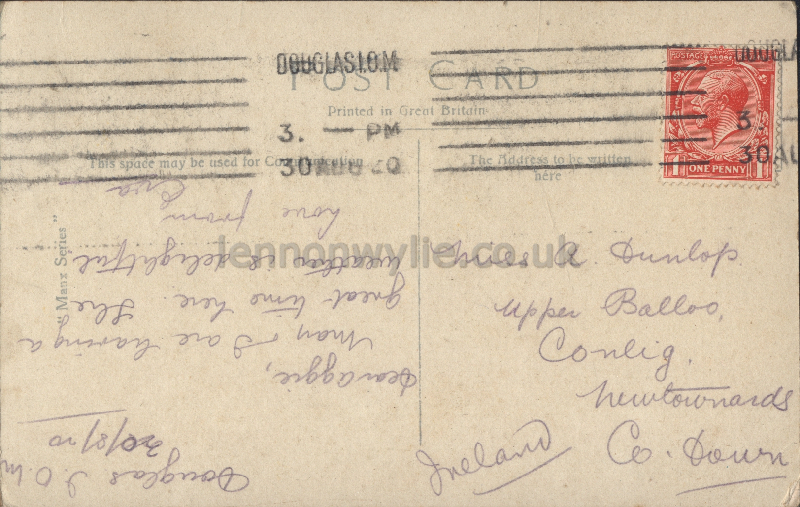 DOUGLAS I.O.M
3. — PM
30 AUG 20
DOUGLA
3. —
30 AU
POSTAGE REVENUE
1 ONE PENNY 1
POST CARD
Printed in Great Britain
This space may be used for Communication
The Address to be written
here
"Manx Series"
lennonwylie.co.uk
Douglas I.O.M
30/8/20
Dear Aggie,
Man I are having a
great time here. The
weather is delightful
love from
Miss A. Dunlop
Upper Balloo,
Conlig,
Newtownards
Co. Down
Ireland